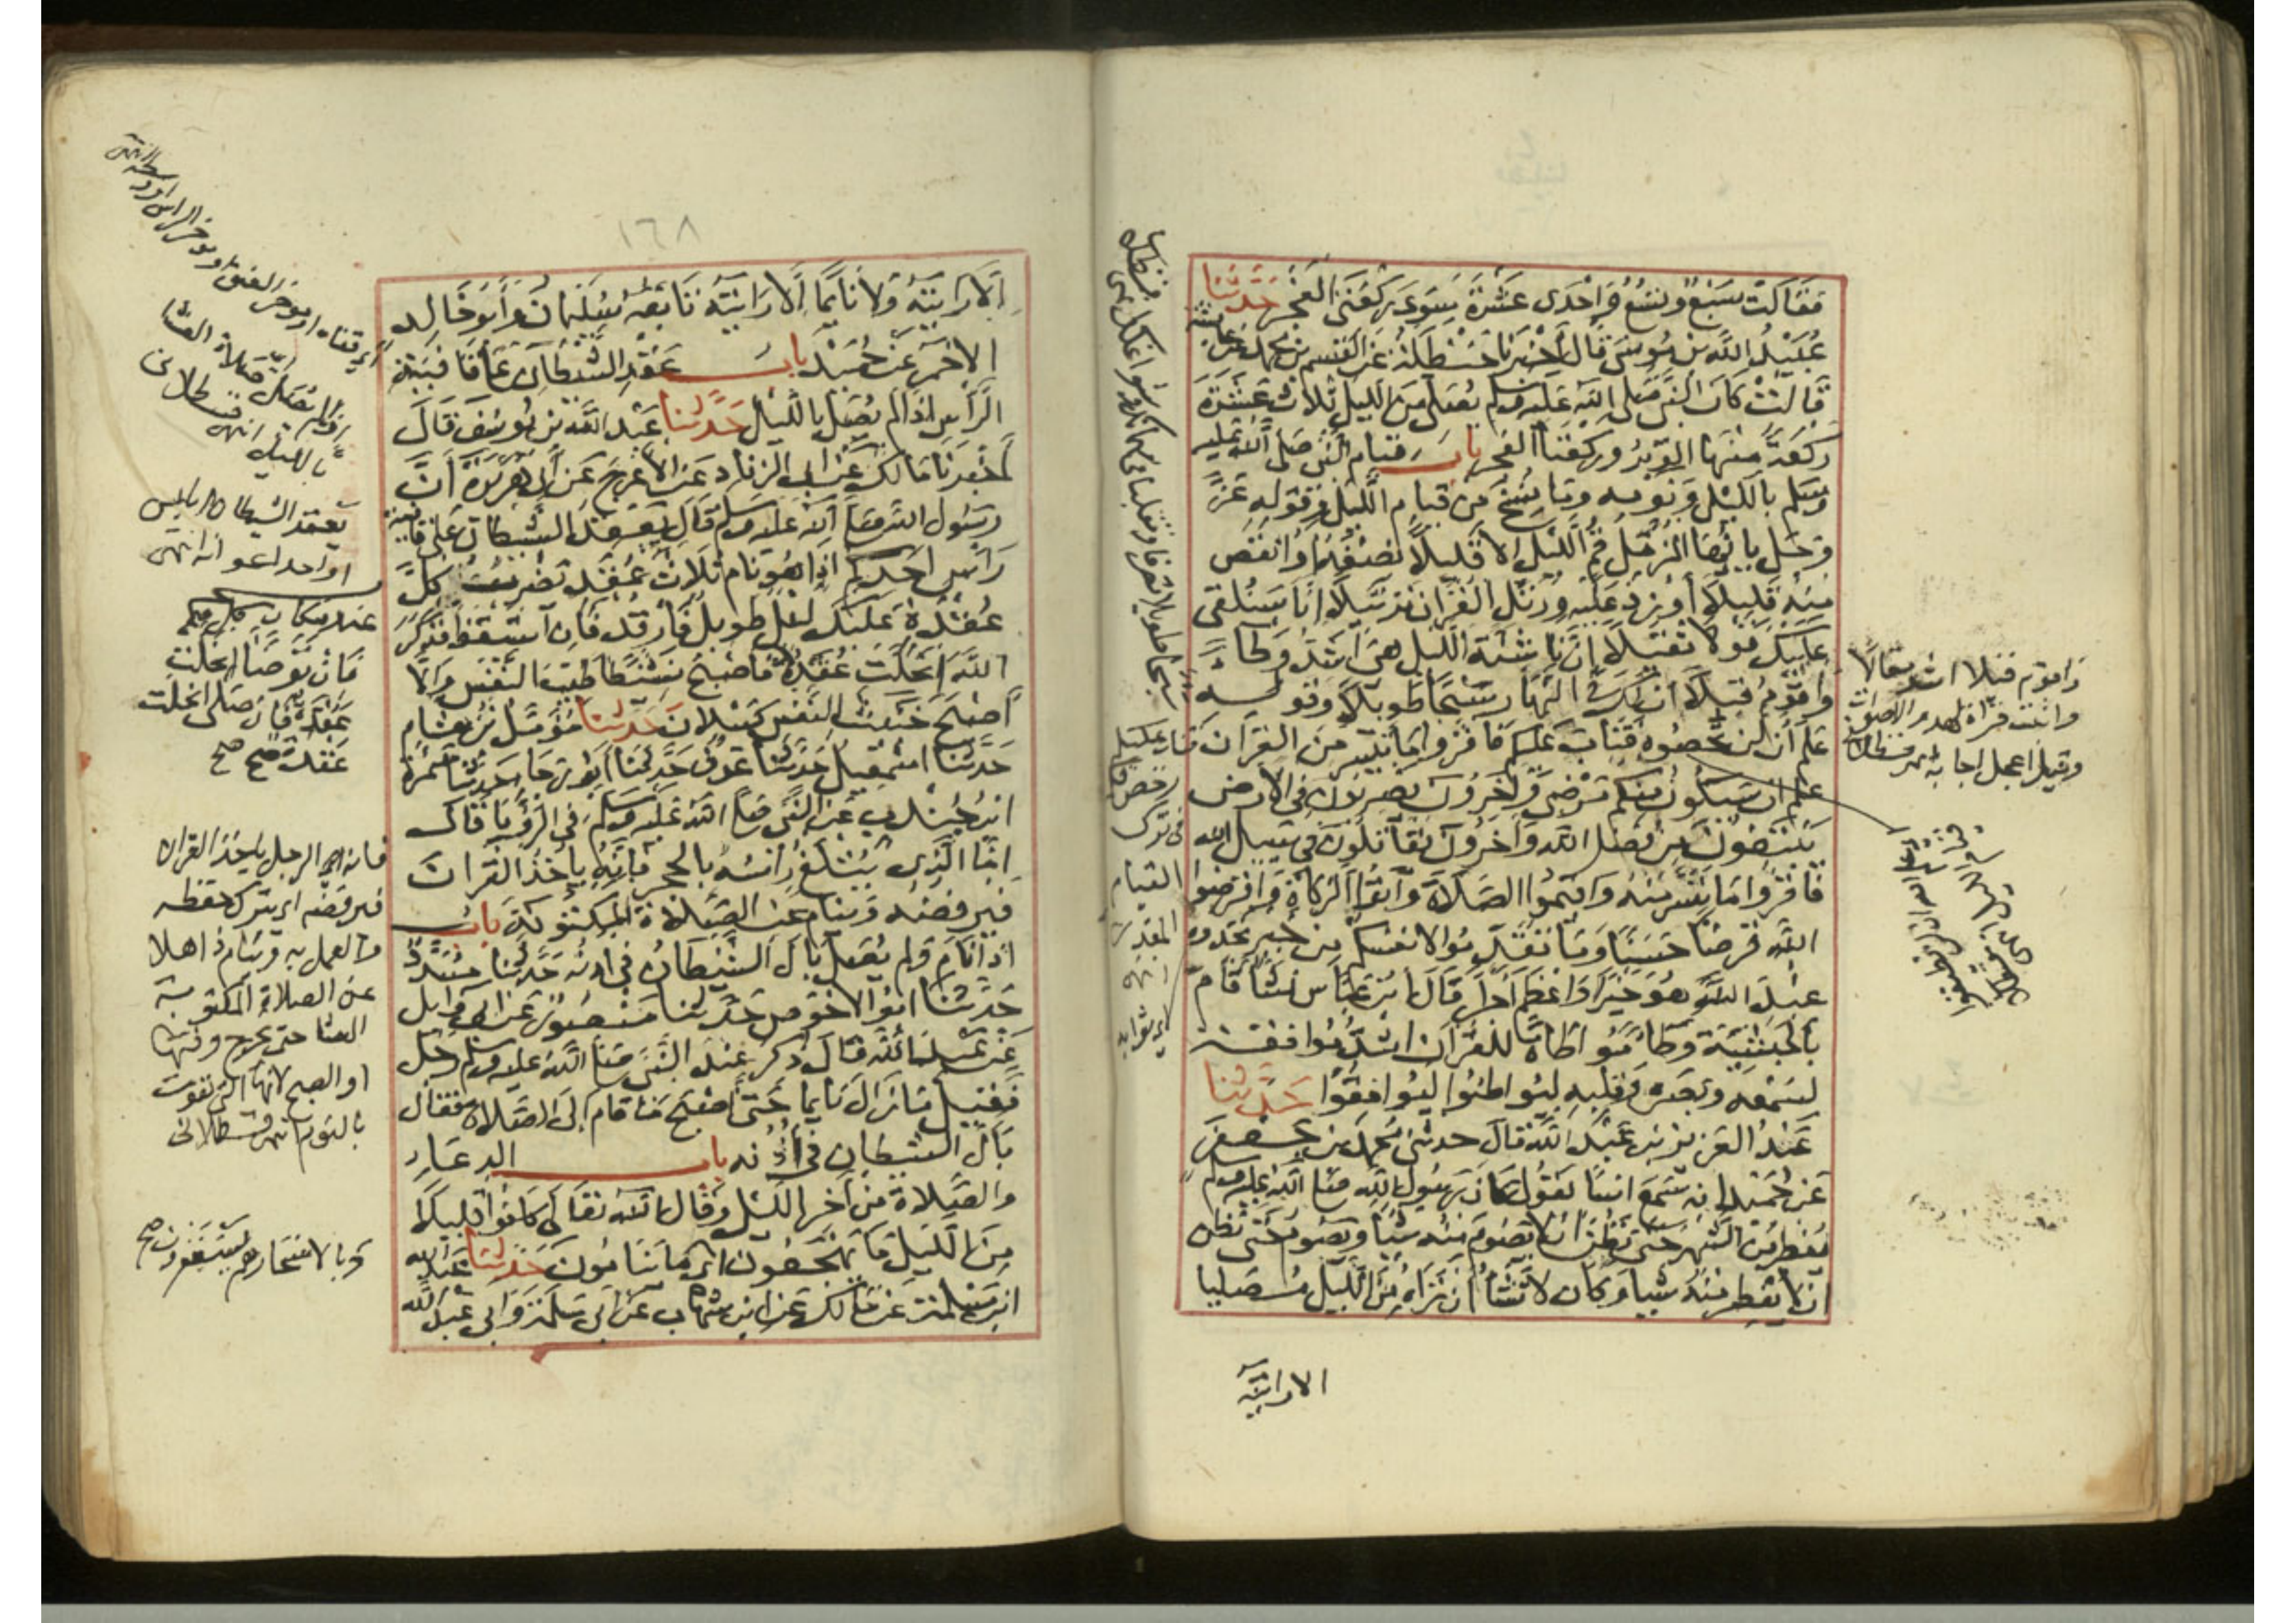 فقالت سبع وتسع واحدى عشرة سوى ركعتى الفجر حدثنا
عبيد الله بن موسى قال أخبرنا حنظلة عن القسم بن محمد عن عائشة
قالت كان النبى صلى الله عليه وسلم يصلى من الليل ثلاث عشرة
ركعة منها الوتر وركعتا الفجر باب قيام النبى صلى الله عليه
وسلم بالليل ونومه وما نسخ من قيام الليل وقوله عز
وجل يا أيها المزمل قم الليل الا قليلا نصفه او انقص
منه قليلا أو زد عليه ورتل القرآن ترتيلا انا سنلقى
عليك قولا ثقيلا ان ناشئة الليل هى اشد وطاء
وأقوم قيلا ان لك فى النهار سبحا طويلا وقوله
علم أن لن تحصوه فتاب عليكم فاقرؤا ما تيسر من القرآن
علم ان سيكون منكم مرضى وآخرون يضربون فى الارض
يبتغون من فضل الله وآخرون يقاتلون فى سبيل الله
فاقرؤا ما تيسر منه واقيموا الصلاة وآتوا الزكاة واقرضوا
الله قرضا حسنا وما تقدموا لانفسكم من خير تجدوه
عند الله هو خيرا واعظم اجرا قال ابن عباس نشأ قام
بالحبشية وطاء مواطأة للقرآن اشد موافقة
لسمعه وبصره وقلبه ليواطئوا ليوافقوا حدثنا
عبد العزيز بن عبد الله قال حدثنى محمد بن جعفر
عن حميد انه سمع انسا يقول كان رسول الله صلى الله عليه وسلم
يفطر من الشهر حتى نظن ان لا يصوم منه شيا ويصوم حتى نظن
ان لا يفطر منه شيا وكان لا تشأ أن تراه من الليل مصليا
الا رايته
واقوم قيلا اشد مقالا
واثبت قراة لهدو الاصوات
وقيل اعجل اجابة
القيام
١٦٨
الا رايته ولا نائما الا رايته تابعه سليمان وأبو خالد
الاحمر عن حميد باب عقد الشيطان على قافية
الرأس اذا لم يصل بالليل حدثنا عبد الله بن يوسف قال
أخبرنا مالك عن ابى الزناد عن الأعرج عن أبى هريرة أن
رسول الله صلى الله عليه وسلم قال يعقد الشيطان على قافية
رأس احدكم اذا هو نام ثلاث عقد يضرب كل
عقدة عليك ليل طويل فارقد فان استيقظ فذكر
الله انحلت عقدة فاصبح نشيطا طيب النفس والا
أصبح خبيث النفس كسلان حدثنا مؤمل بن هشام
حدثنا اسمعيل حدثنا عوف حدثنا ابو رجاء حدثنا سمرة
ابن جندب عن النبى صلى الله عليه وسلم فى الرؤيا قال
اما الذى يثلغ رأسه بالحجر فانه يأخذ القرآن
فيرفضه وينام عن الصلاة المكتوبة باب
اذا نام ولم يصل بال الشيطان فى اذنه حدثنا مسدد
حدثنا ابو الاحوص حدثنا منصور عن ابى وايل
عن عبد الله قال ذكر عند النبى صلى الله عليه وسلم رجل
فقيل ما زال نايما حتى اصبح ما قام إلى الصلاة فقال
بال الشيطان فى أذنه باب الدعاء
والصلاة من آخر الليل وقال الله تعالى كانوا قليلا
من الليل ما يهجعون اى ما ينامون حدثنا عبد الله
ابن مسلمة عن مالك عن ابن شهاب عن ابى سلمة وابى عبد الله
يعقد الشيطان ابليس
او احد اعوانه انتهى
عند مكان كل
فان توضأ انحلت
عقدة فان صلى انحلت
عقدة صح
فانه الرجل ياخذ القران
فيرفضه اى يترك حفظه
والعمل به وينام ذاهلا
عن الصلاة المكتوبة
العشا حتى يخرج وقتها
او الصبح لانها التى تفوت
بالنوم انتهى قسطلانى
وبالاسحار هم يستغفرون صح